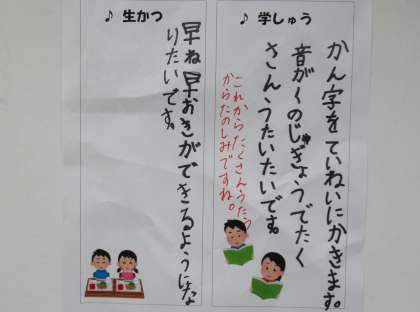 ♪ 学しゅう
かん字をていねいにかきます。
音がくのじゅぎょうでたく
さんうたいたいです。
これからたくさんうたう
からたのしみですね。
♪ 生かつ
早ね早おきができるようにな
りたいです。